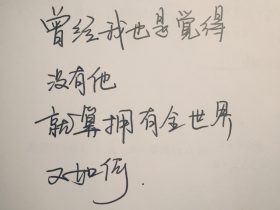 曾经我也是觉得
没有他
就算拥有全世界
又如何.